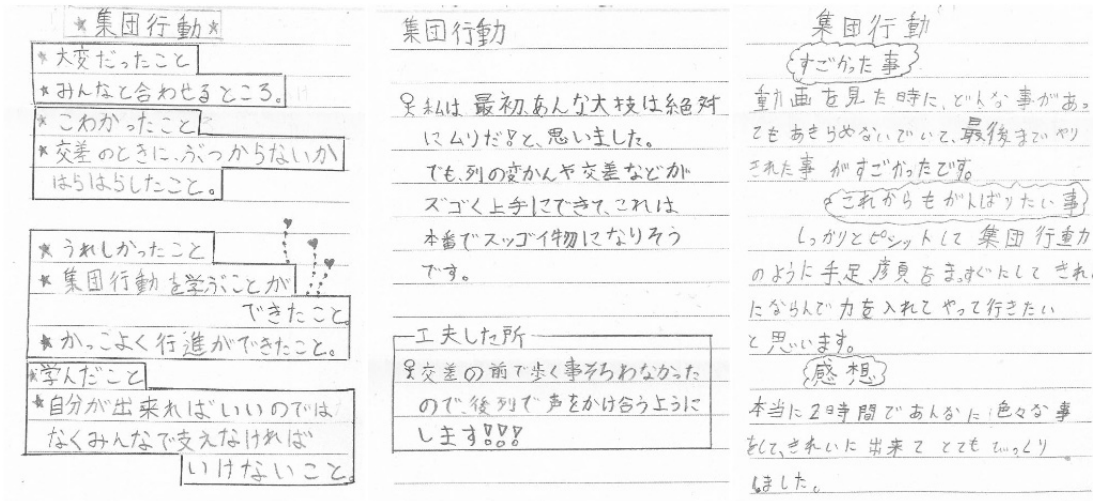 ★集団行動★
★大変だったこと
★みんなと合わせるところ。
★こわかったこと
★交差のときに、ぶつからないか
はらはらしたこと。
★うれしかったこと
★集団行動を学ぶことが
できたこと。
★かっこよく行進ができたこと。
★学んだこと
★自分が出来ればいいのでは
なくみんなで支えなければ
いけないこと。
集団行動
私は、最初、あんな大技は絶対
にムリだ!?と、思いました。
でも、列の変かんや交差などが
スゴく上手にできて、これは
本番でスッゴイ物になりそう
です。
工夫した所
交差の前で歩く事そろわなかった
ので、後列で声をかけ合うように
します!!!
集団行動
すごかった事
動画を見た時に、どんな事があっ
てもあきらめないでいて、最後までやり
きれた事がすごかったです。
これからもがんばりたい事
しっかりとピシットして集団行動
のように手、足、顔をまっすぐにしてきれい
にならんで力を入れてやって行きたい
と思います。
感想
本当に2時間であんなに色々な事
をして、きれいに出来てとてもびっくり
しました。